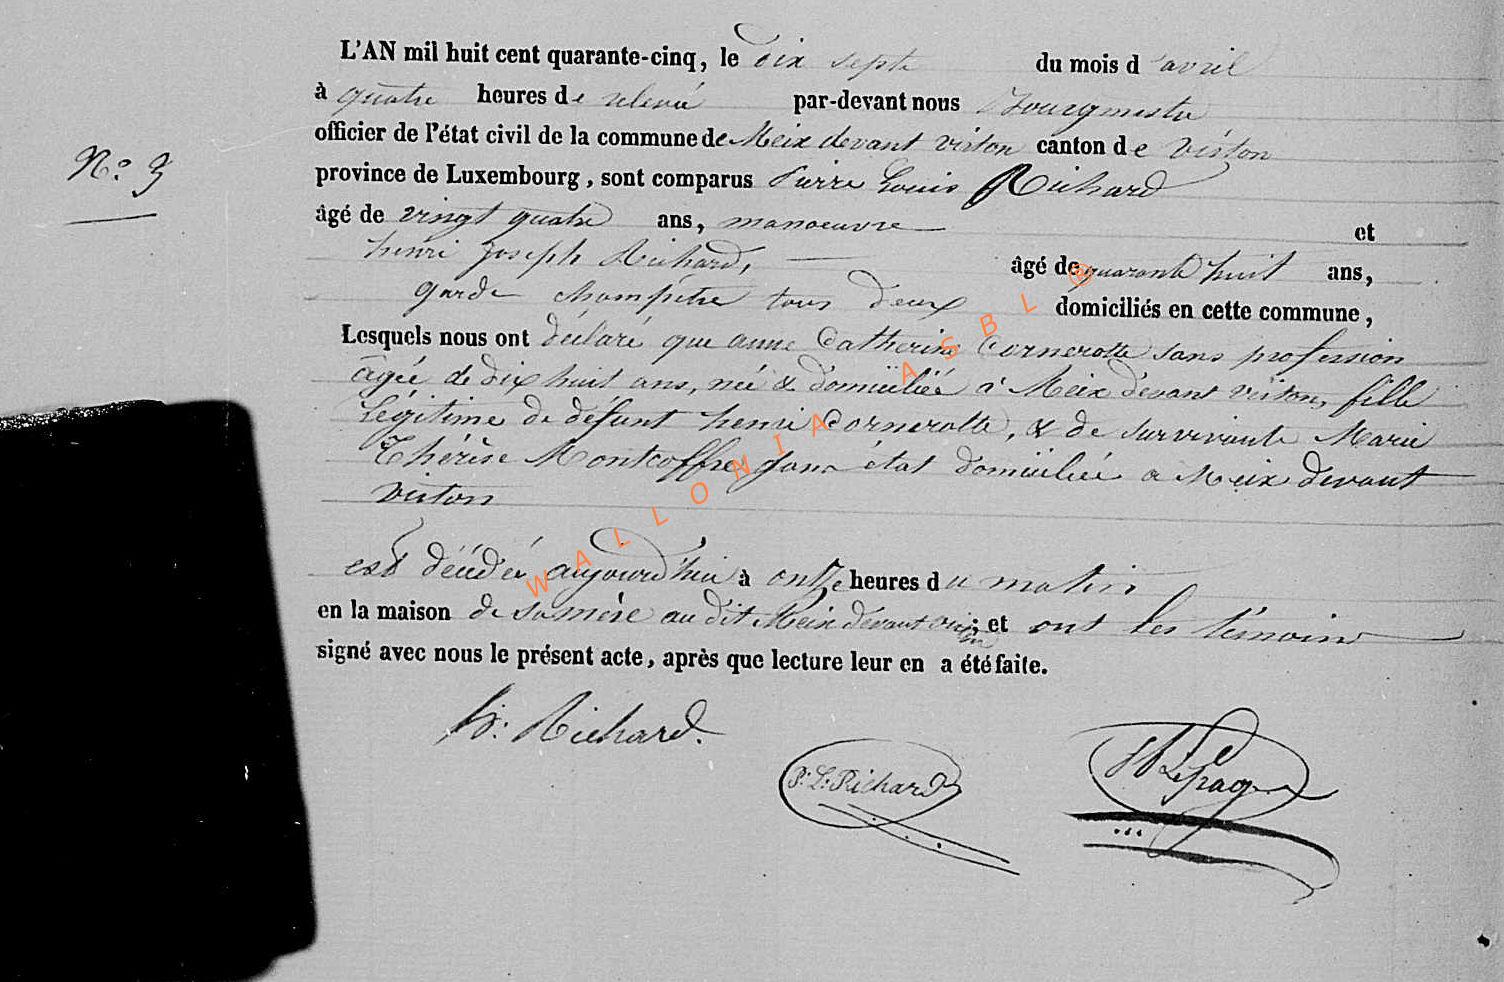 L'AN mil huit cent quarante-cinq, le dix sept du mois d'avril
à quatre heures de relevée par-devant nous Bourgmestre
officier de l'état civil de la commune de Meix devant virton canton de virton
N° 3
province de Luxembourg, sont comparus Pierre Louis Richard
âgé de vingt quatre ans, manoeuvre et
henri joseph Richard, âgé de quarante huit ans,
garde champêtre tous deux domiciliés en cette commune,
Lesquels nous ont déclaré que anne Catherine Cornerotte sans profession
âgée de dix huit ans, née & domiciliée à Meix devant virton, fille
légitime de défunt henri Cornerotte, & de survivante Marie
Thérèse Montcoffre sans état domiciliée a Meix devant
virton
est décédée aujourd'hui à onze heures du matin
en la maison de sa mère au dit Meix devant virton; et ont les témoins
signé avec nous le présent acte, après que lecture leur en a été faite.
h: Richard.
P: L: Richard
Lepage
WALLONIA ASBL ®